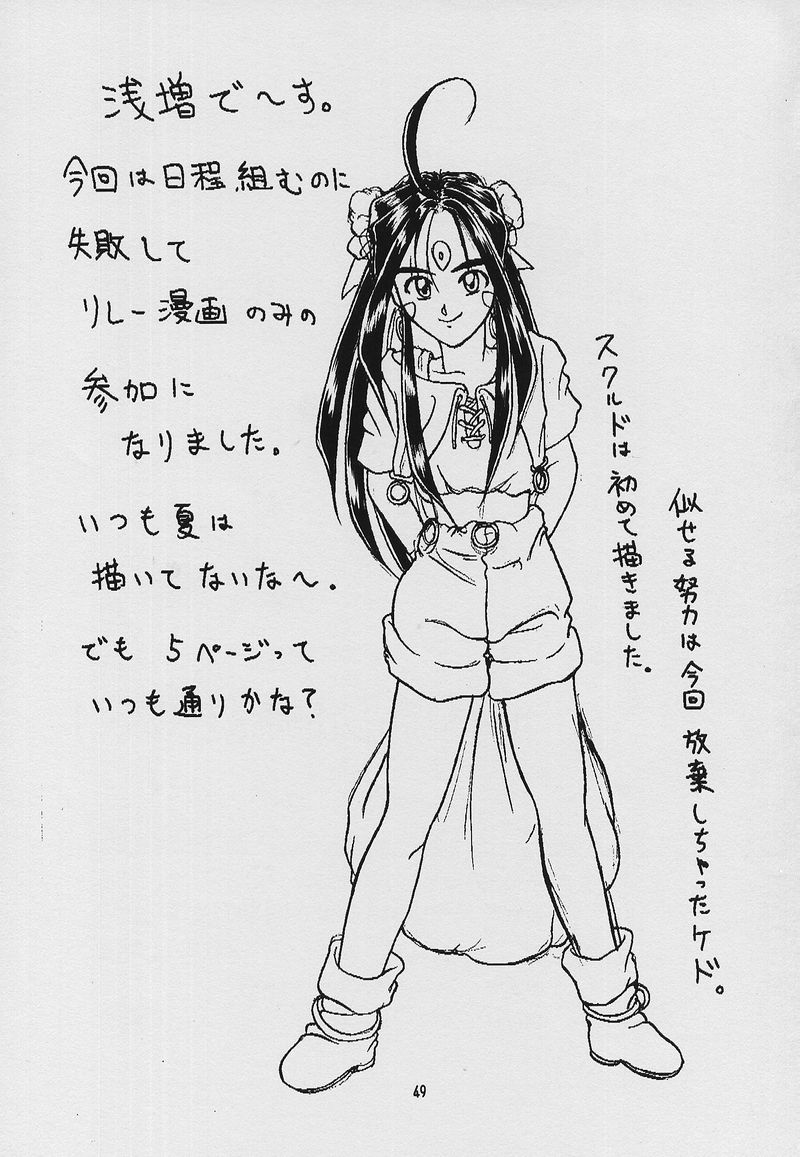 浅増で〜す。
今回は日程組むのに
失敗して
リレー漫画のみの
参加に
なりました。
いつも夏は
描いてないな〜.
でも 5ページって
いつも通りかな?
スクルドは初めて描きました。
似せる努力は今回 放棄しちゃったケド。
49